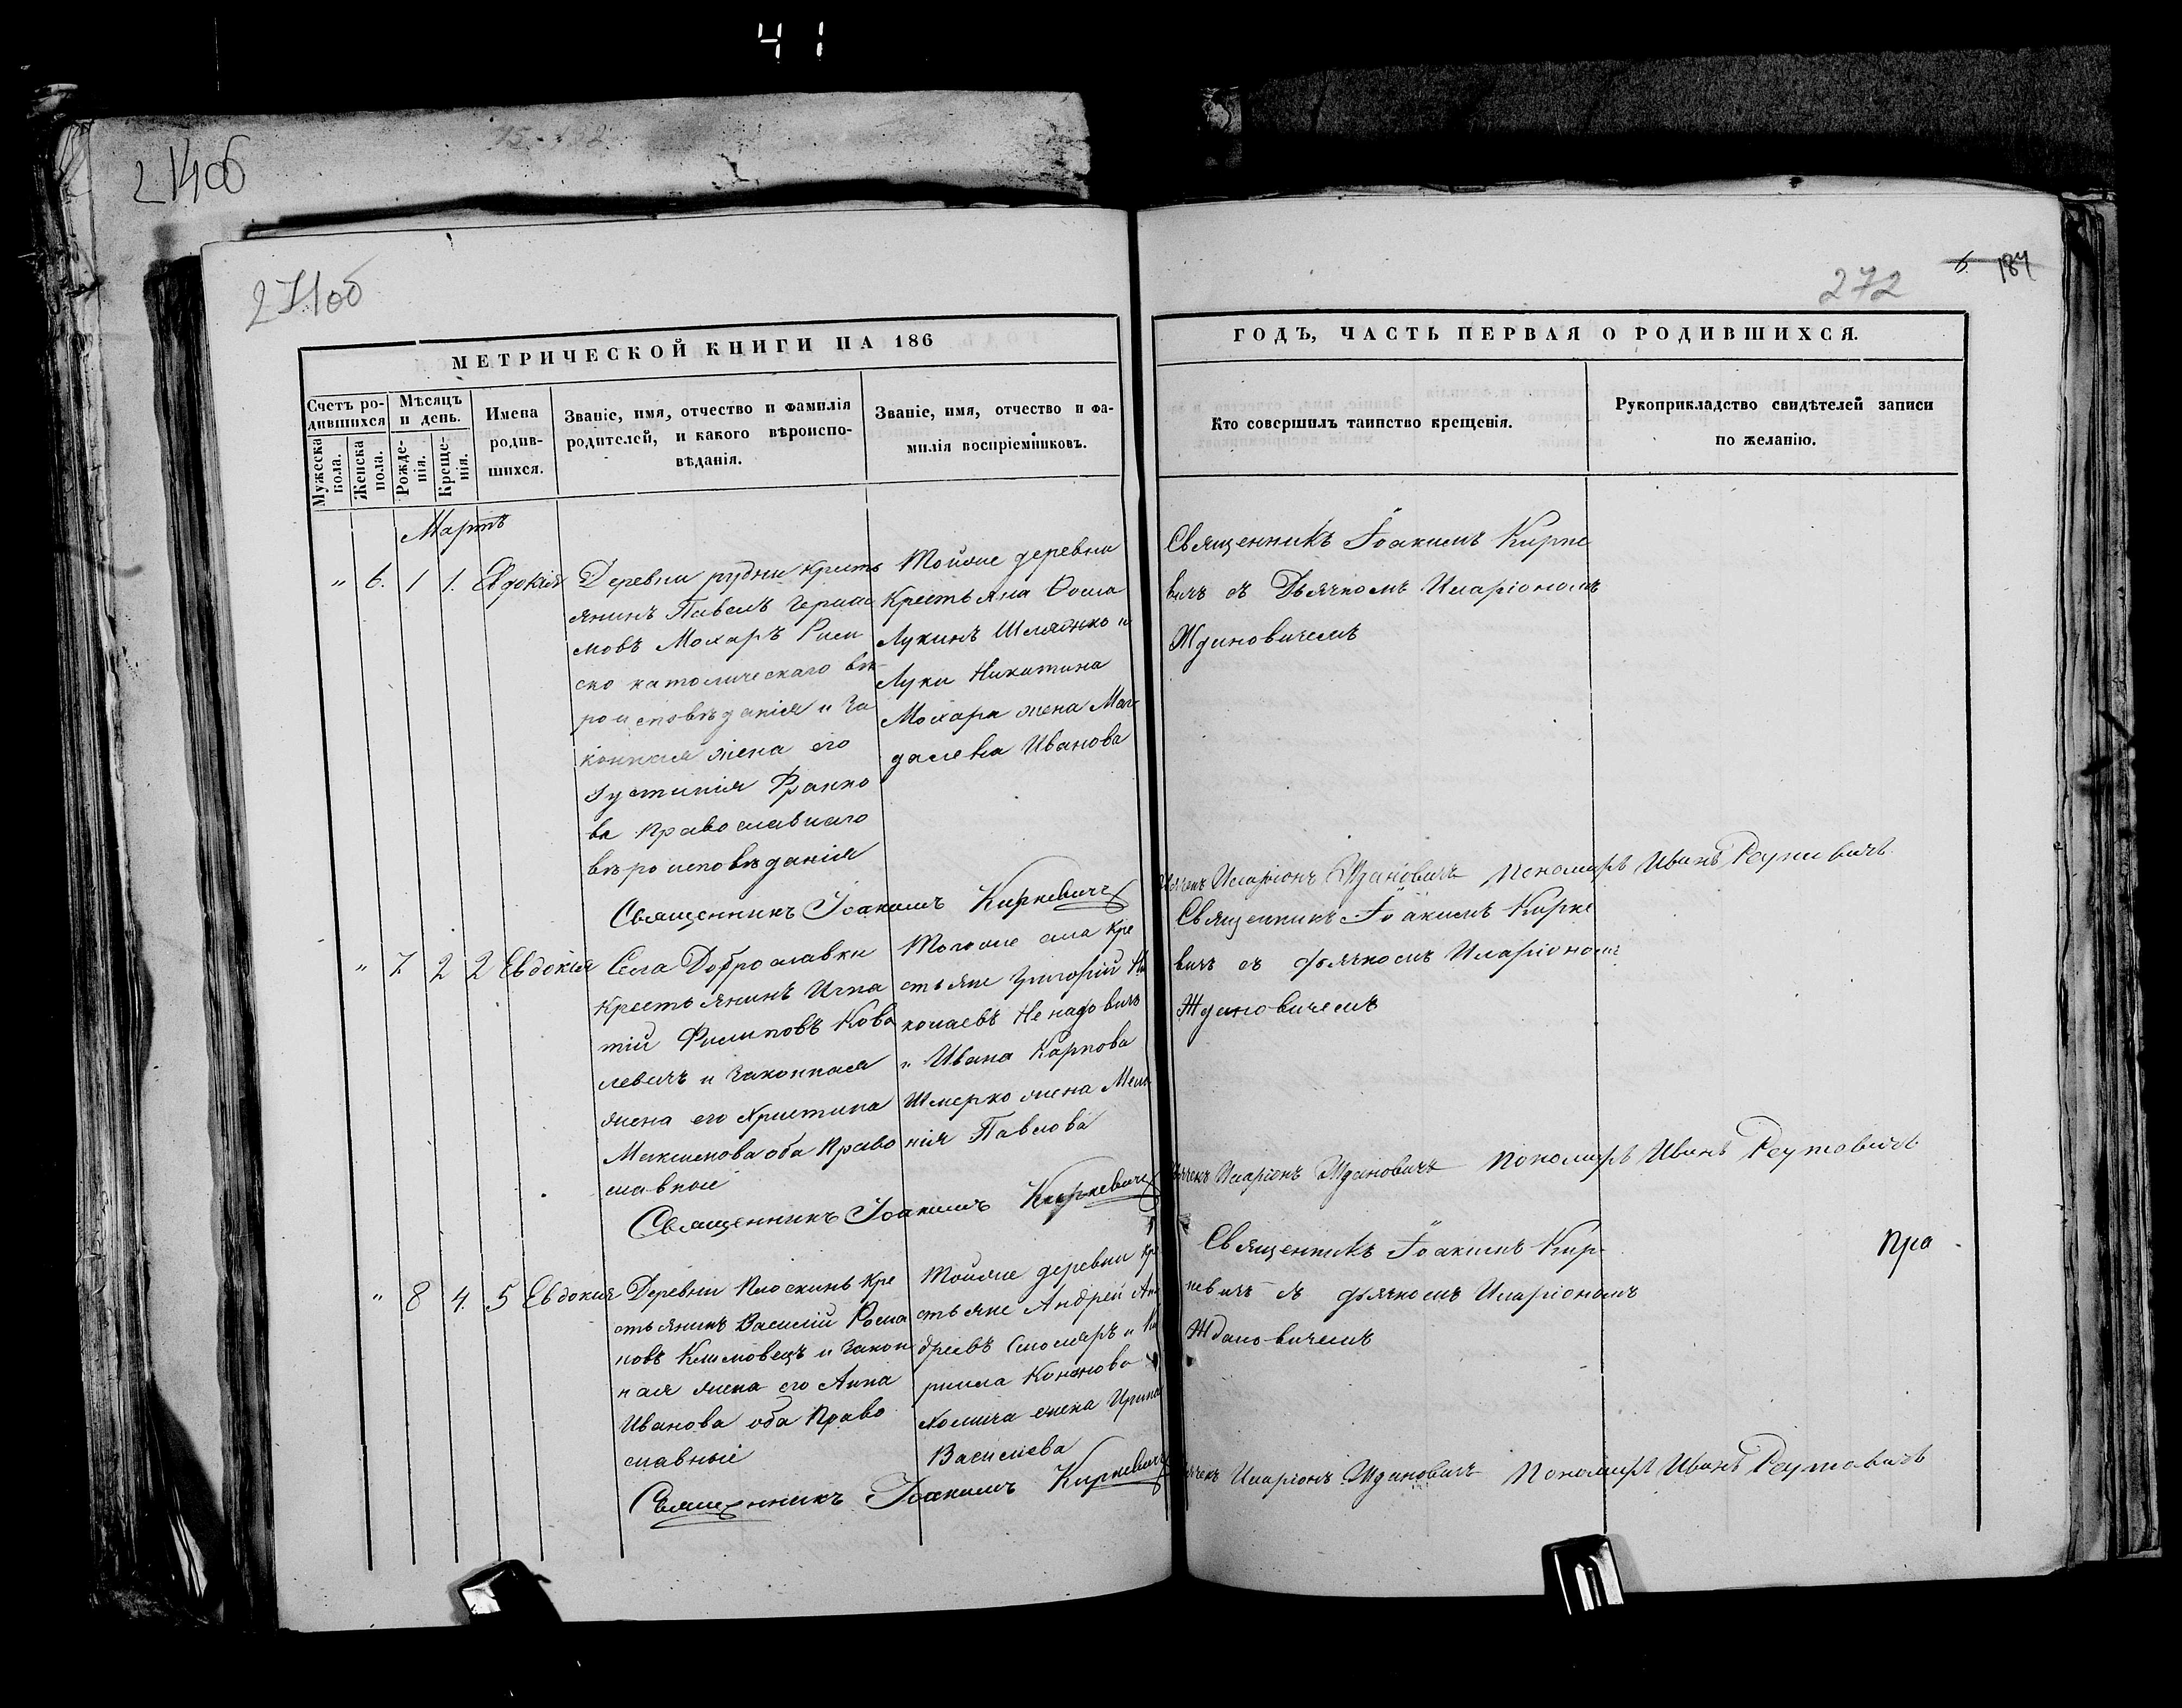 41
271об
272
184
МЕТРИЧЕСКОЙ КНИГИ НА 186
ГОДЪ, ЧАСТЬ ПЕРВАЯ О РОДИВШИХСЯ.
Счетъ ро-
дившихся
Мужеска
пола.
Женска
пола.
Мѣсяцъ
и день.
Рожде-
нія.
Креще-
нія.
Имена
родив-
шихся.
Званіе, имя, отчество и фамилія
родителей, и какого вѣроиспо-
вѣданія.
Званіе, имя, отчество и фа-
милія воспріемниковъ.
Кто совершилъ таинство крещенія.
Рукоприкладство свидѣтелей записи
по желанію.
Мартъ
" 6. 1 1. Евдокія
Деревни рудни кресть
янинъ Павелъ Гераси
мовъ Мохаръ Рим
ско католическаго вѣ
роисповѣданія и за
конная жена его
Іустинія Франко
ва православнаго
вѣроисповѣданія
Тойже деревни
Крестьяна Ѳома
Лукинъ Шляжко и
Луки Никитина
Мохара жена Маг
далена Иванова
Священникъ Іоакимъ Кирке
вичъ съ Дьячкомъ Иларіономъ
Ждановичемъ
Священникъ Іоакимъ Киркевичъ
Дьячекъ Иларіонъ Ждановичъ Пономарь Иванъ Реутовичъ
" 7 2 2 Евдокія
Села Доброславки
Крестьянинъ Игна
тій Филиповъ Кова
левичъ и законная
жена его Христина
Максимова оба Право
славные
Тогоже села кре
стьяне Григорій Ни
колаевъ Ненадовичъ
и Ивана Карпова
Шмерко жена Мела
нія Павлова
Священникъ Іоакимъ Кирке
вичъ съ дьячкомъ Иларіономъ
Ждановичемъ
Священникъ Іоакимъ Киркевичъ
Дьячекъ Иларіонъ Ждановичъ Пономарь Иванъ Реутовичъ
" 8 4. 5 Евдокія
Деревни Плоскинь Кре
стьянинъ Василій Рома
новъ Климовецъ и закон
ная жена его Анна
Иванова оба Право
славные
Тойже деревни кре
стьяне Андрей Ан
дреевъ Столяръ и Ки
рилла Кононова
Хомича жена Ирина
Василева
Священникъ Іоакимъ Кир-
кевичъ съ дьячкомъ Иларіономъ
Ждановичемъ
Пра
Священникъ Іоакимъ Киркевичъ
Дьячекъ Иларіонъ Ждановичъ Пономарь Иванъ Реутовичъ